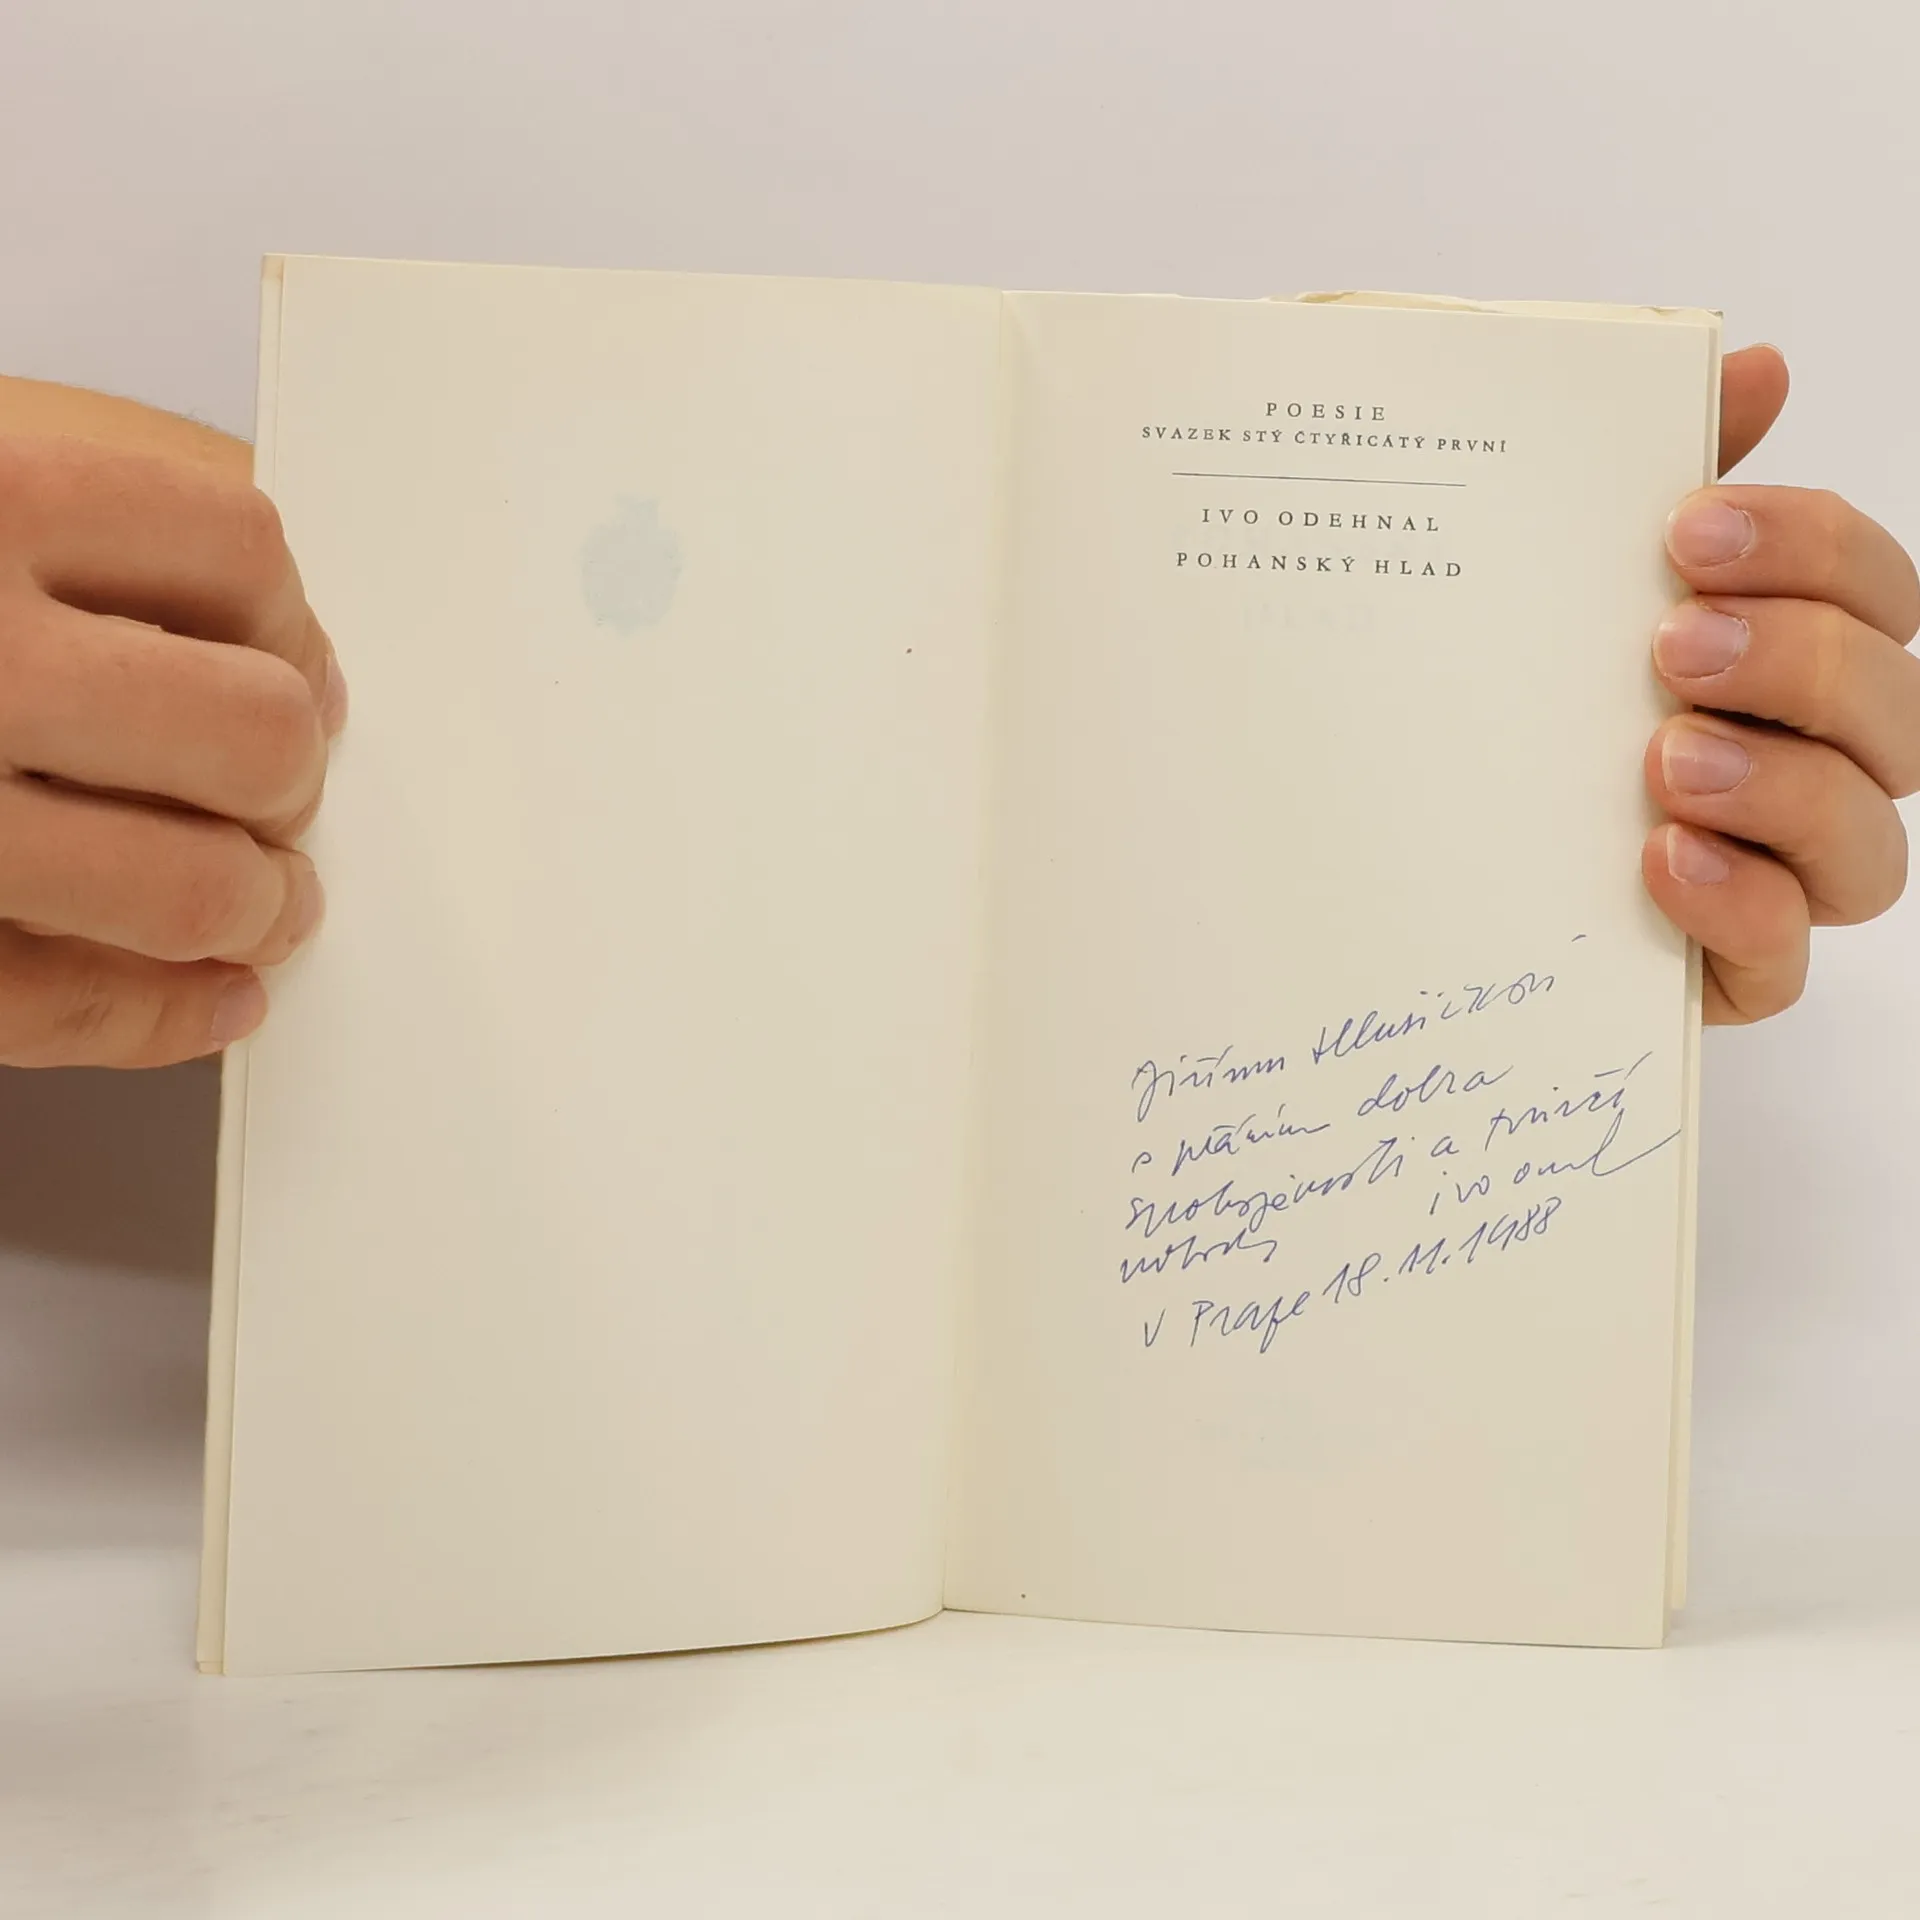 POESIE
SVAZEK STÝ ČTYŘICÁTÝ PRVNÍ
IVO ODEHNAL
POHANSKÝ HLAD
Jiřímu Hlusičkovi
s přáním dobra
spokojenosti a tvůrčí
ivo
v Praze 18.11.1988